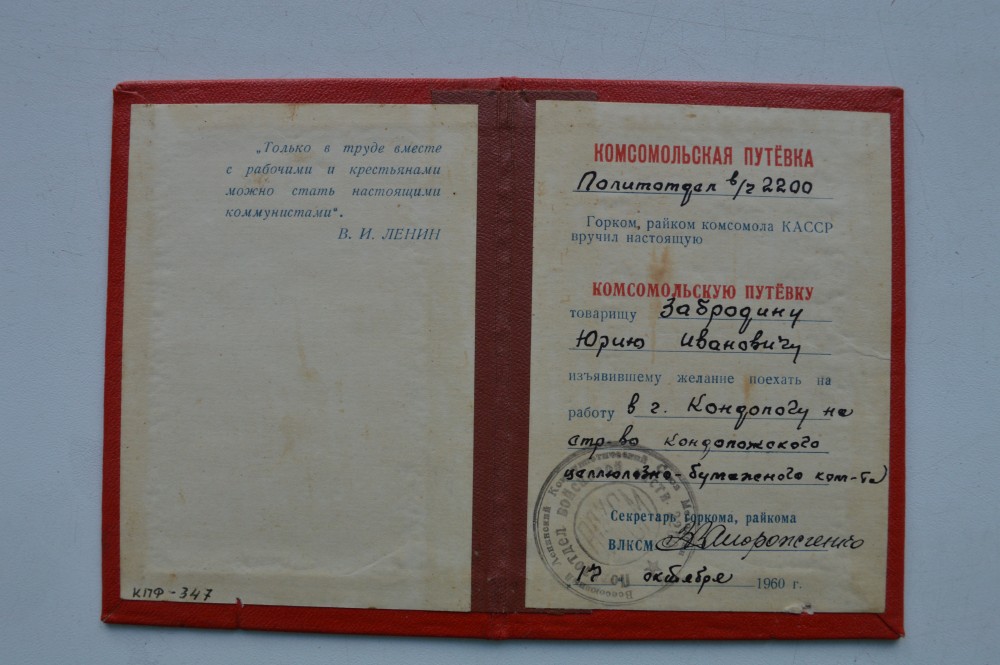 „Только в труде вместе
с рабочими и крестьянами
можно стать настоящими
коммунистами".
В. И. ЛЕНИН
КПФ-347
КОМСОМОЛЬСКАЯ ПУТЁВКА
Политотдел в/ч 2200
Горком, райком комсомола КАССР
вручил настоящую
КОМСОМОЛЬСКУЮ ПУТЁВКУ
товарищу Забродину
Юрию Ивановичу
изъявившему желание поехать на
работу в г. Кондопогу на
стр-во Кондопожского
целлюлозно-бумажного ком-та
Секретарь горкома, райкома
ВЛКСМ
17 октября 1960 г.